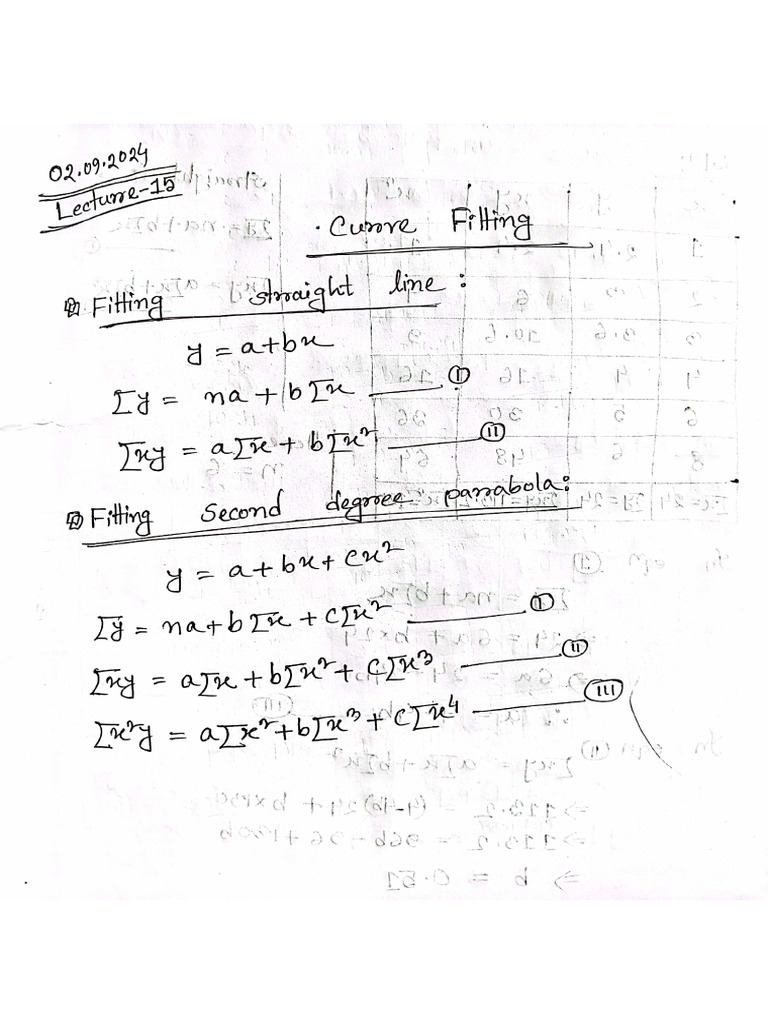 02.09.2024
Lecture-15
Curve Fitting
Fitting straight line:
y = a+bx
Σy = na + bΣx ——— (I)
Σxy = aΣx + bΣx² ——— (II)
Fitting second degree parabola:
y = a+bx+cx²
Σy = na+bΣx+cΣx² ——— (I)
Σxy = aΣx+bΣx²+cΣx³ ——— (II)
Σx²y = aΣx²+bΣx³+cΣx⁴ ——— (III)